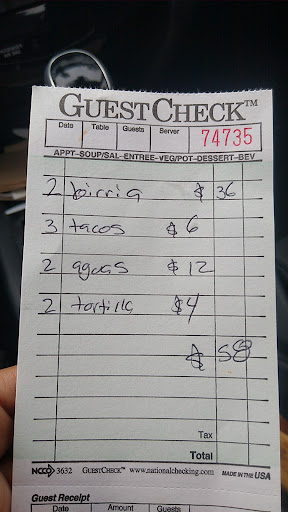 GUESTCHECK™
Date Table Guests Server 74735
APPT-SOUP/SAL-ENTREE-VEG/POT-DESSERT-BEV
2 birria $ 36
3 tacos $ 6
2 aguas $ 12
2 tortilla $4
$ 58
Tax
Total
NCCO 3632 GUESTCHECK™ www.nationalchecking.com MADE IN THE USA
Guest Receipt
Date Amount Guests